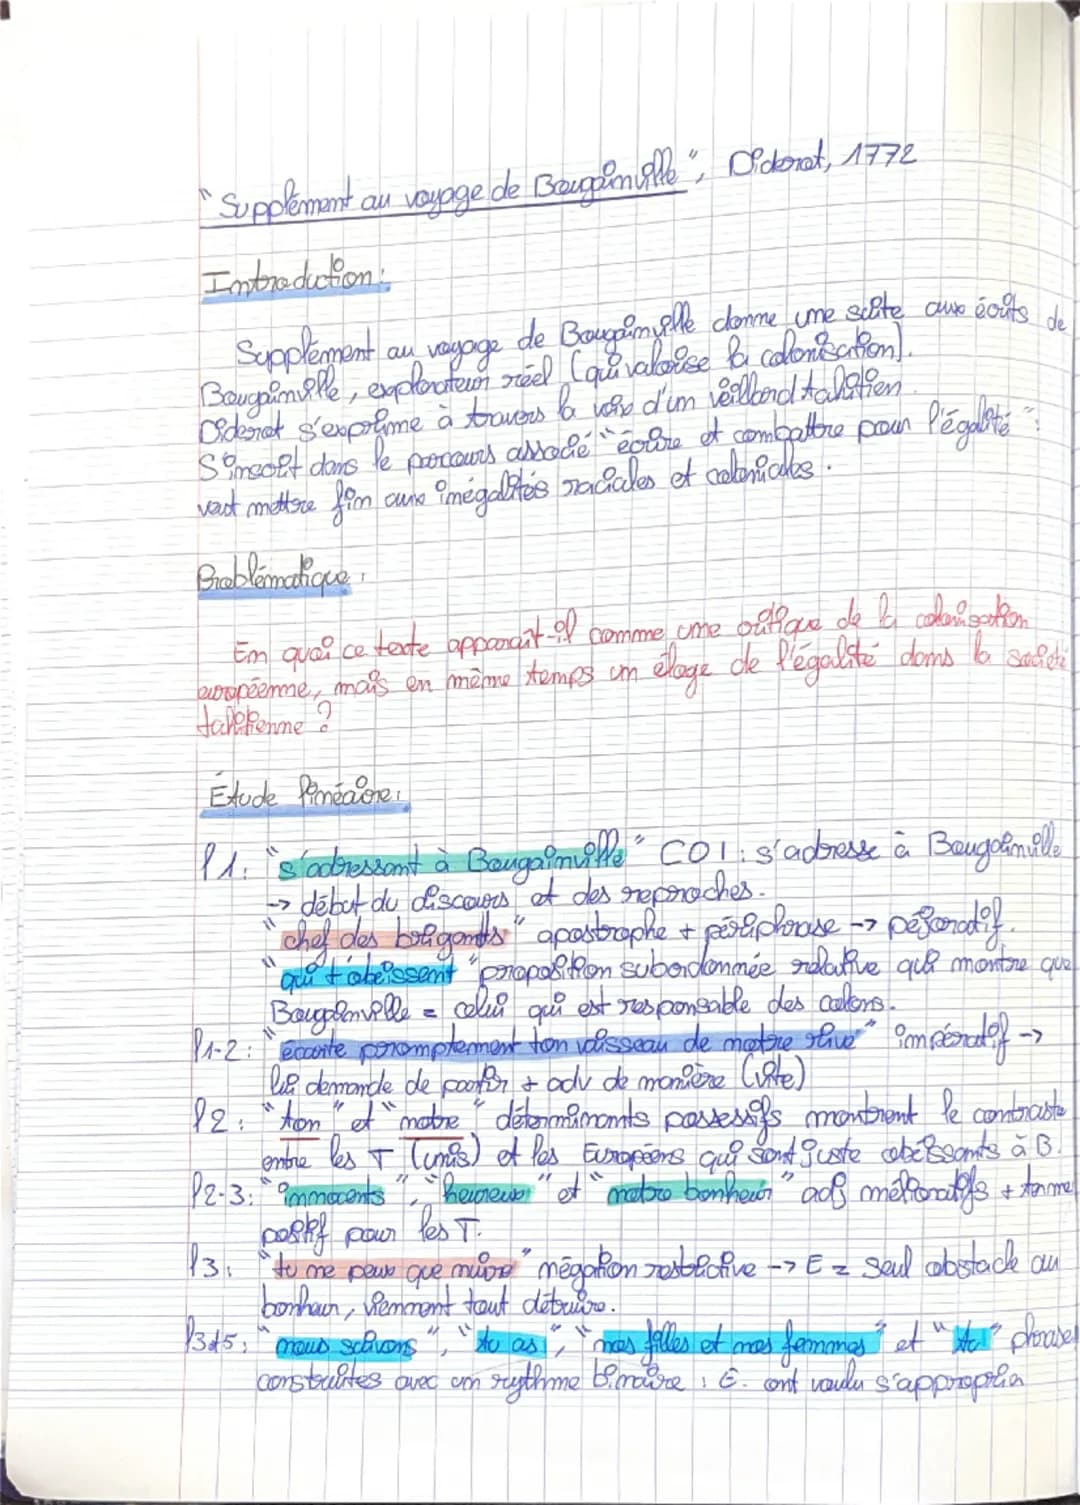 "Supplément au voyage de Bougainville", Diderot, 1772
Introduction :
Supplément au voyage de Bougainville donne une suite aux écrits de
Bougainville, explorateur réel (qui valorise la colonisation).
Diderot s'exprime à travers la voix d'un veillard tahitien.
S'inscrit dans le parcours associé "écrire et combattre pour l'égalité" :
veut mettre fin aux inégalités raciales et coloniales.
Problématique :
En quoi ce texte apparaît-il comme une critique de la colonisation
européenne, mais en même temps un éloge de l'égalité dans la société
tahitienne ?
Étude linéaire :
l1 : "s'adressant à Bougainville" COI : s'adresse à Bougainville
-> début du discours et des reproches.
"chef des brigands" apostrophe + périphrase -> péjoratif.
"qui t'obéissent" proposition subordonnée relative qui montre que
Bougainville = celui qui est responsable des colons.
l1-2 : "écarte promptement ton vaisseau de notre rive" impératif ->
lui demande de partir + adv de manière (vite)
l2 : "ton" et "notre" déterminants possessifs montrent le contraste
entre les T (unis) et les Européens qui sont juste obéissants à B.
l2-3 : "innocents", "heureux" et "notre bonheur" adj mélioratifs + terme
positif pour les T.
l3 : "tu ne peux que nuire" négation restrictive -> E = seul obstacle au
bonheur, viennent tout détruire.
l3à5 : "nous suivons", "tu as", "nos filles et nos femmes" et "tu" phrases
construites avec un rythme binaire : E. ont voulu s'approprier